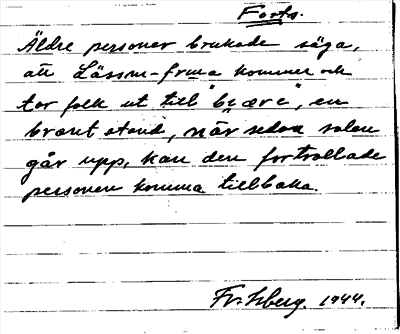 Forts.
Äldre personer brukade säga,
att Lässm-frua kommer och
tar folk ut till "bære", en
brant stand, när sedan solen
går upp, kan den fortrollade
personen komma tillbaka.
1944.